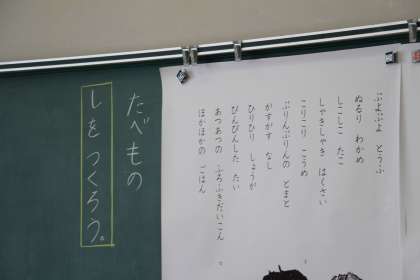 ぷよぷよ とうふ
ぬるり わかめ
しこしこ たこ
しゃきしゃき はくさい
こりこり こうめ
ぷりんぷりんの とまと
がすがす なし
ひりひり しょうが
ぴんぴんした たい
あつあつの ふろふきだいこん
ほかほかの ごはん
たべもの
しを つくろう。